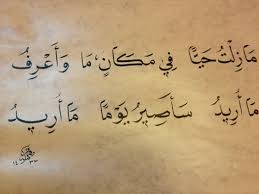 مَازِلْتُ حَيًّا فِي مَكَانٍ مَا وَأَعْرِفُ
مَا أُرِيدُ سَأَصِيرُ يَوْمًا مَا أُرِيدُ